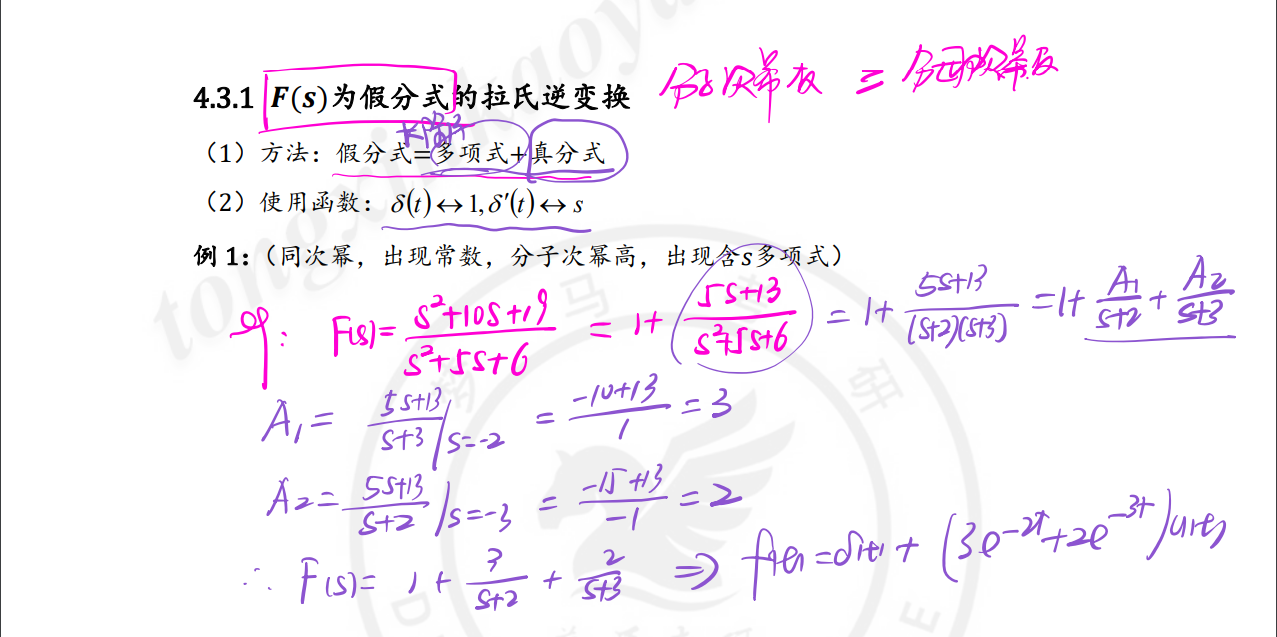 tongxinkaoyan
4.3.1 F(s)为假分式的拉氏逆变换 分子次幂为 ≥ 分母次幂及
长除
(1)方法:假分式=多项式+真分式
(2)使用函数:δ(t)↔1,δ′(t)↔s
例1:(同次幂,出现常数,分子次幂高,出现含s多项式)
例: F(s)=(s²+10s+19)/(s²+5s+6) = 1+(5s+13)/(s²+5s+6) = 1+(5s+13)/((s+2)(s+3)) = 1+A₁/(s+2)+A₂/(s+3)
A₁= (5s+13)/(s+3)|s=-2 = (-10+13)/1 = 3
A₂= (5s+13)/(s+2)|s=-3 = (-15+13)/-1 = 2
∴ F(s)= 1+3/(s+2)+2/(s+3) ⇒ f(t)=δ(t)+(3e^-2t+2e^-3t)u(t)